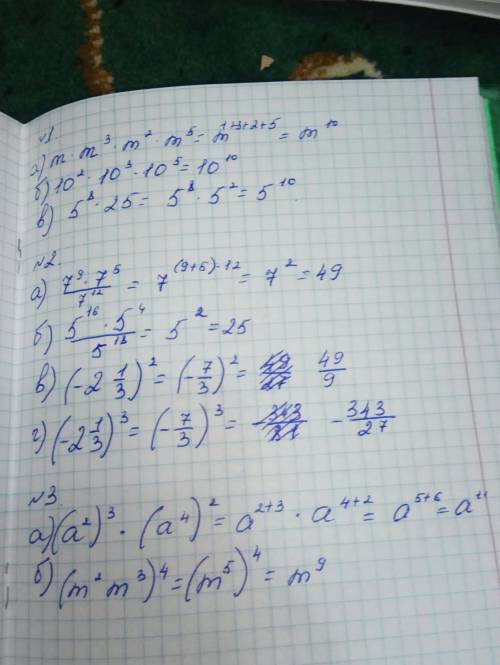 №1
а) m · m³ · m² · m⁵ = m¹⁺³⁺²⁺⁵ = m¹⁰
б) 10² · 10³ · 10⁵ = 10¹⁰
в) 5⁸ · 25 = 5⁸ · 5² = 5¹⁰
№2.
а) (7⁹ · 7⁵)/7¹² = 7⁽⁹⁺⁵⁾⁻¹² = 7² = 49
б) (5¹⁶ · 5⁴)/5¹⁸ = 5² = 25
в) (-2 1/3)² = (-7/3)² = 49/9
г) (-2 1/3)³ = (-7/3)³ = -343/27
№3.
а) (a²)³ · (a⁴)² = a²⁺³ · a⁴⁺² = a⁵⁺⁶ = a¹¹
б) (m² m³)⁴ = (m⁵)⁴ = m⁹